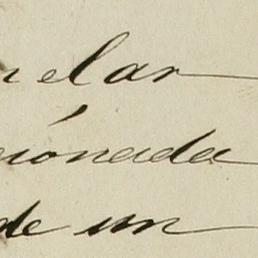 elar
ciónada
de un